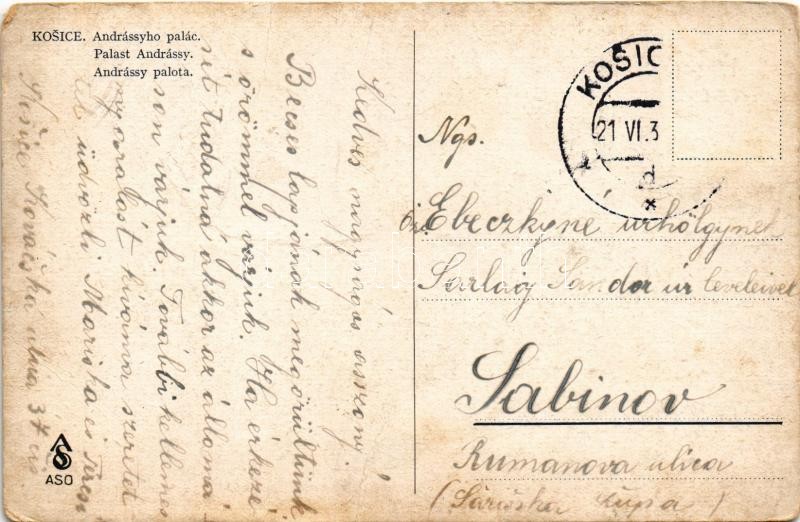 KOŠICE. Andrássyho palác.
Palast Andrássy.
Andrássy palota.
Kedves nagyságos asszony!
Becses lapjának megörültünk
s örömmel várjuk. Ha érkezé
sét tudatná akkor az állomá
son várjuk. További kellemes
nyaralást kívánva szeretet
tel üdvözli Mariska és Teresi
Košice Kováčska ulica 37
KOŠIC
21 VI.3
d
Ngs.
Ebeczkyné úrhölgynek
Sándor úr leveleivel
Sabinov
Rumanova ulica
(Šarišská župa)
ASO